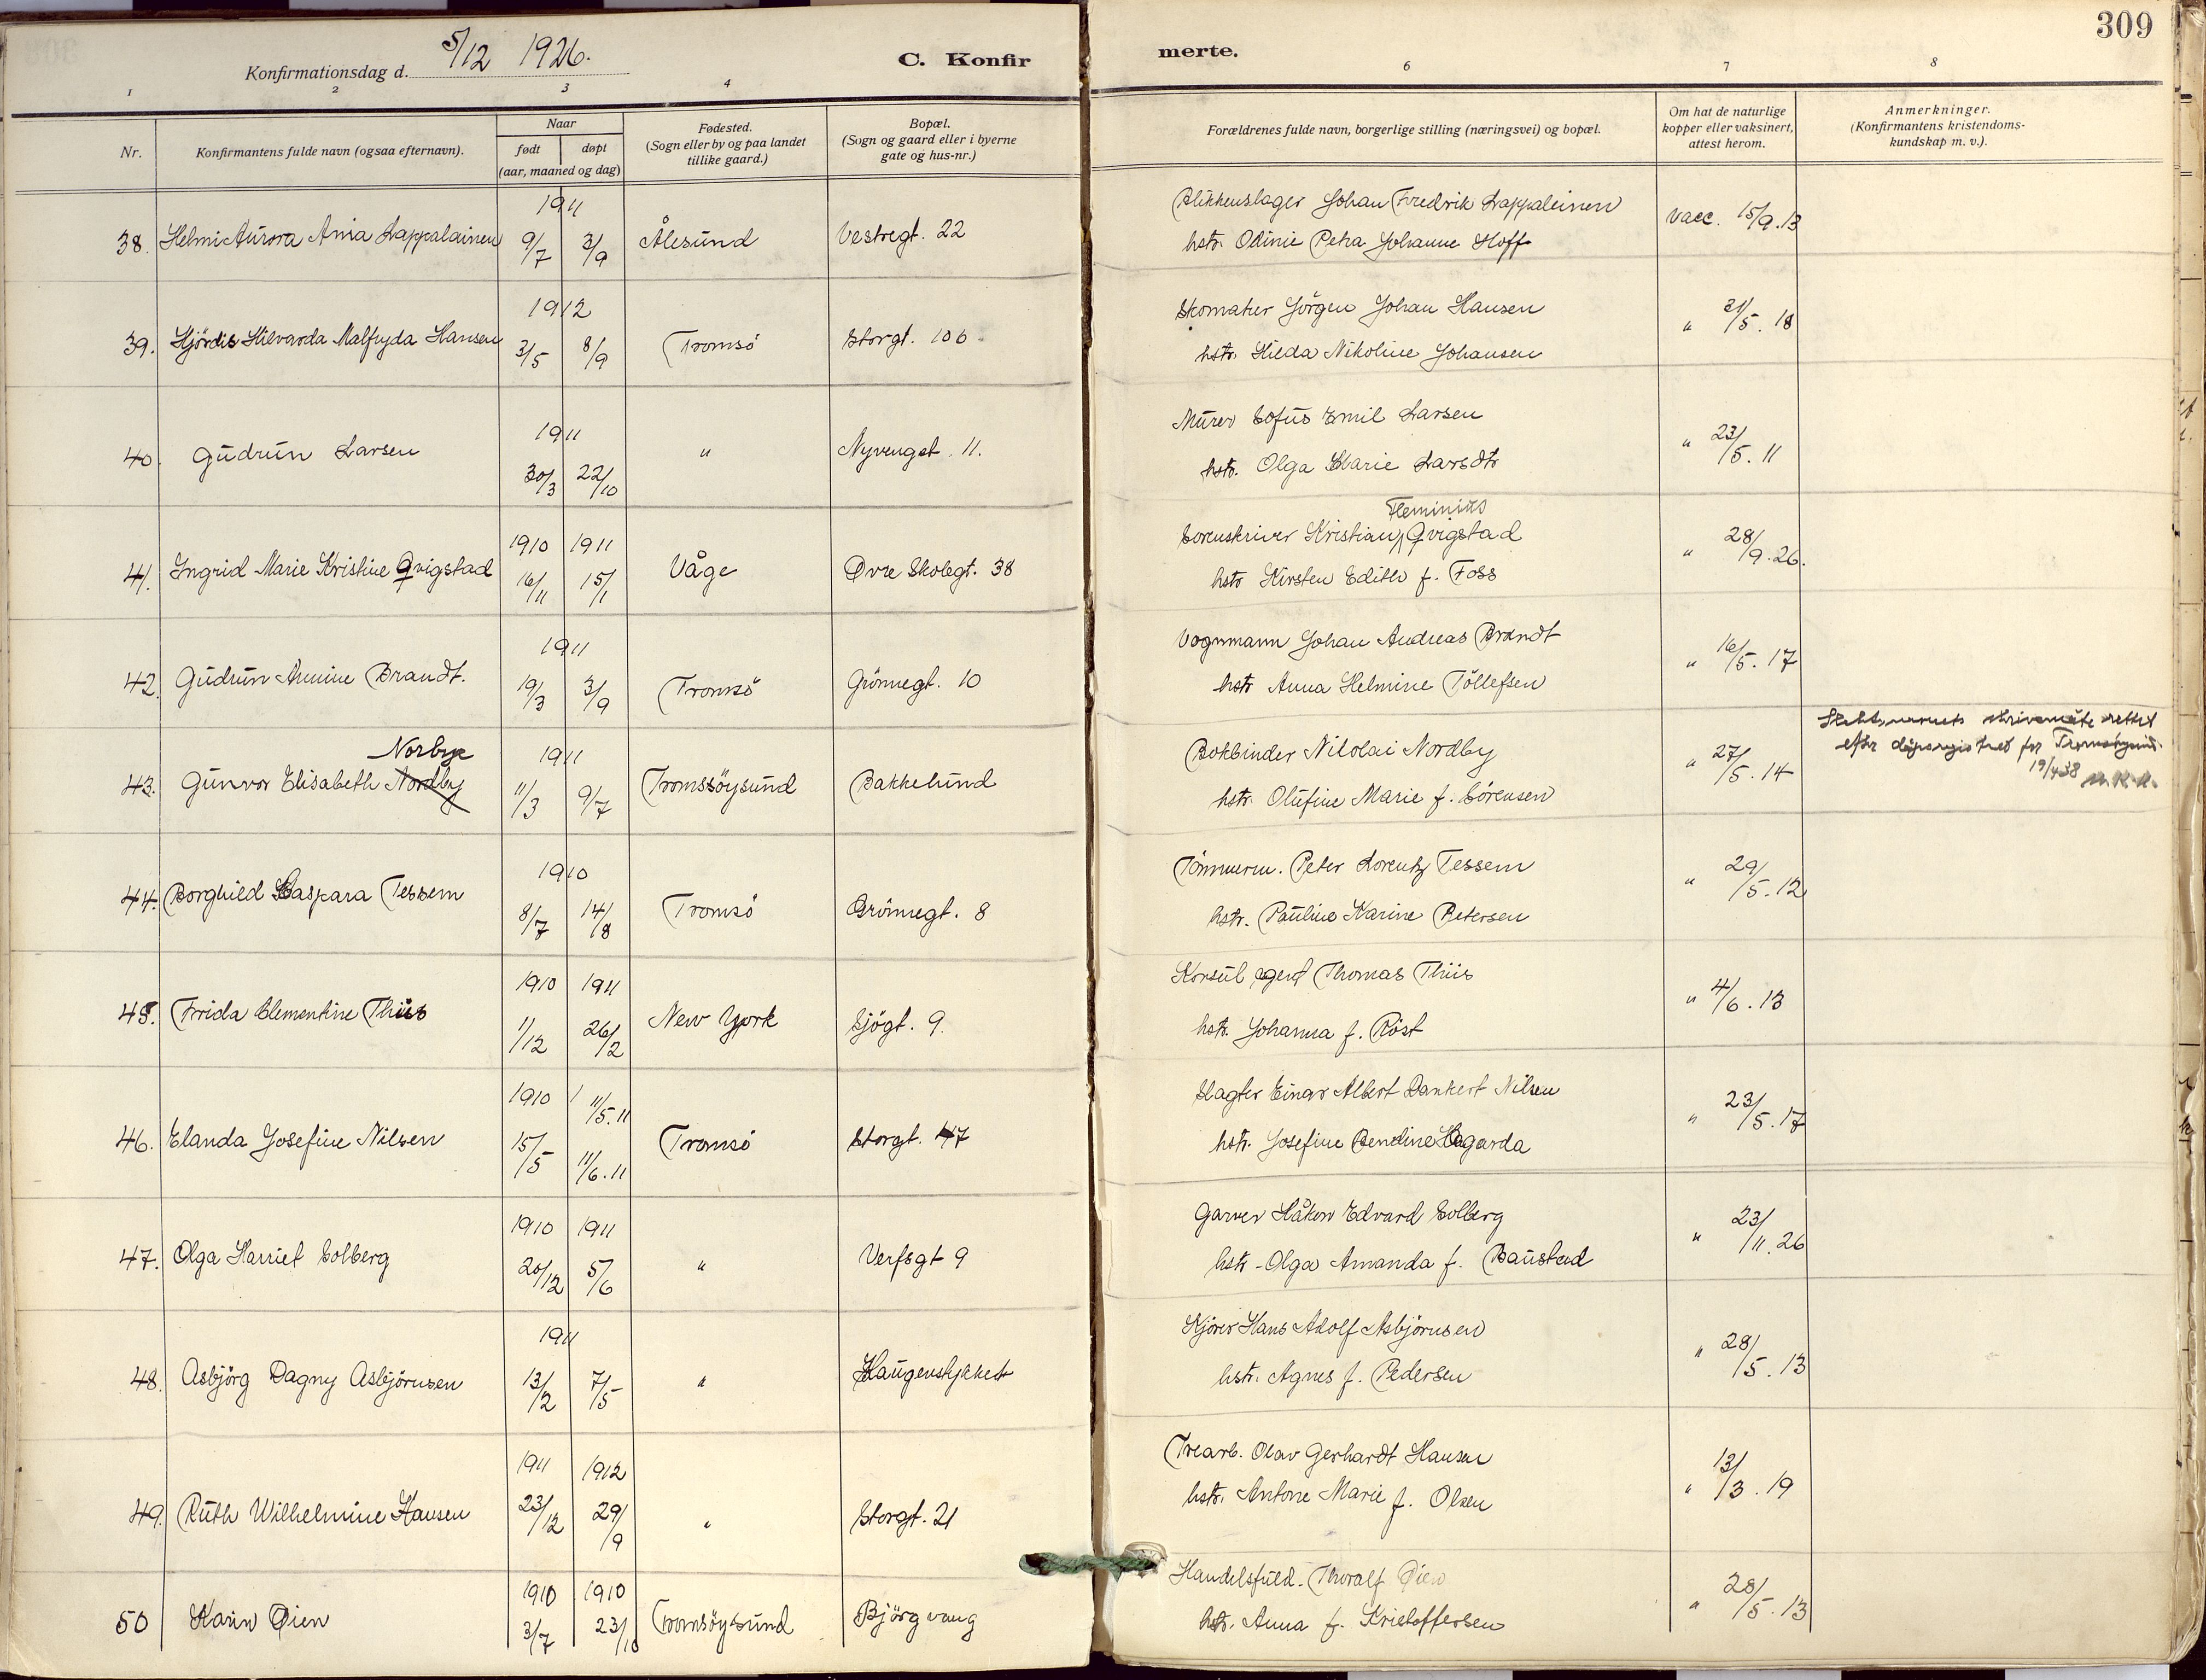 309
Konfirmationsdag d. 5/12 1926.
C. Konfirmerte.
1 2 3 4 6 7 8
Nr.
Konfirmantens fulde navn (ogsaa efternavn).
Naar
født døpt
(aar, maaned og dag)
Fødested.
(Sogn eller by og paa landet
tillike gaard.)
Bopæl.
(Sogn og gaard eller i byerne
gate og hus-nr.)
Forældrenes fulde navn, borgerlige stilling (næringsvei) og bopæl.
Om hat de naturlige
kopper eller vaksinert,
attest herom.
Anmerkninger.
(Konfirmantens kristendoms-
kundskap m. v.).
1911
38. Helmi Aurora Ania Lappalainen 9/7 3/9 Ålesund Vestregt. 22
Blikkenslager Johan Fredrik Lappaleinen vacc. 15/9.13
hstr. Odinie Petra Johanne Hoff
1912
39. Hjördis Hilvarda Malfryda Hansen 3/5 8/9 Tromsö Storgt. 106
Skomaker Jörgen Johan Hansen " 31/5.18
hstr. Hilda Nikoline Johansen
1911
40. Gudrun Larsen 30/3 22/10 " Nyvenget. 11.
Murer Sofus Emil Larsen " 23/5.11
hstr. Olga Marie Larsdtr
Fleminius
1910 1911
41. Ingrid Marie Kristine Qvigstad 16/11 15/1 Våge Øvre Skolegt. 38
Sorenskriver Kristian Qvigstad " 28/9.26.
hstr Kirsten Edith f. Foss
1911
42. Gudrun Armine Brandt. 19/3 3/9 Tromsö Grönnegt. 10
Vognmann Johan Andreas Brandt " 16/5.17
hstr Anna Helmine Töllefsen
Norbye
1911
43. Gunvor Elisabeth Nordby 11/3 9/7 Tromssöysund Bakkelund
Bokbinder Nikolai Nordby " 27/5.14
hstr. Olufine Marie f. Sörensen
Slektsnavnets skrivemåte rettet
efter dåpsregistret for Tromsöysund.
19/4 38
1910
44. Borghild Kaspara Tessem 8/7 14/8 Tromsö Grönnegt. 8
Tömmerm. Peter Lorentz Tessem " 29/5.12
hstr. Pauline Karine Petersen
1910 1911
45. Frida Clementine Thiis 1/12 26/2 New York Sjögt. 9.
Konsul agent Thomas Thiis " 4/6.13
hstr. Johanna f. Röst
1910 11/5.11
46. Elanda Josefine Nilsen 15/5 11/6.11 Tromsö Storgt. 47
Slagter Einar Albert Dankert Nilsen " 23/5.17
hstr. Josefine Bendine Hagarda
1910 1911
47. Olga Harriet Solberg 20/12 5/6 " Verfsgt 9
Garver Håkon Edvard Solberg " 23/11.26
hstr - Olga Amanda f. Baustad
1911
48. Asbjörg Dagny Asbjörnsen 13/2 7/5 " Haugenstykket
Kjörer Hans Adolf Asbjörnsen " 28/5.13
hstr. Agnes f. Pedersen
1911 1912
49. Ruth Wilhelmine Hansen 23/12 29/9 " Storgt. 21
Trearb. Olav Gerhardt Hansen " 13/3.19
hstr. Antone Marie f. Olsen
1910 1910
50 Karin Øien 3/7 23/10 Tromsöysund Björgvang
Handelsfuld. Thoralf Øien " 28/5.13
hstr. Anna f. Kristoffersen